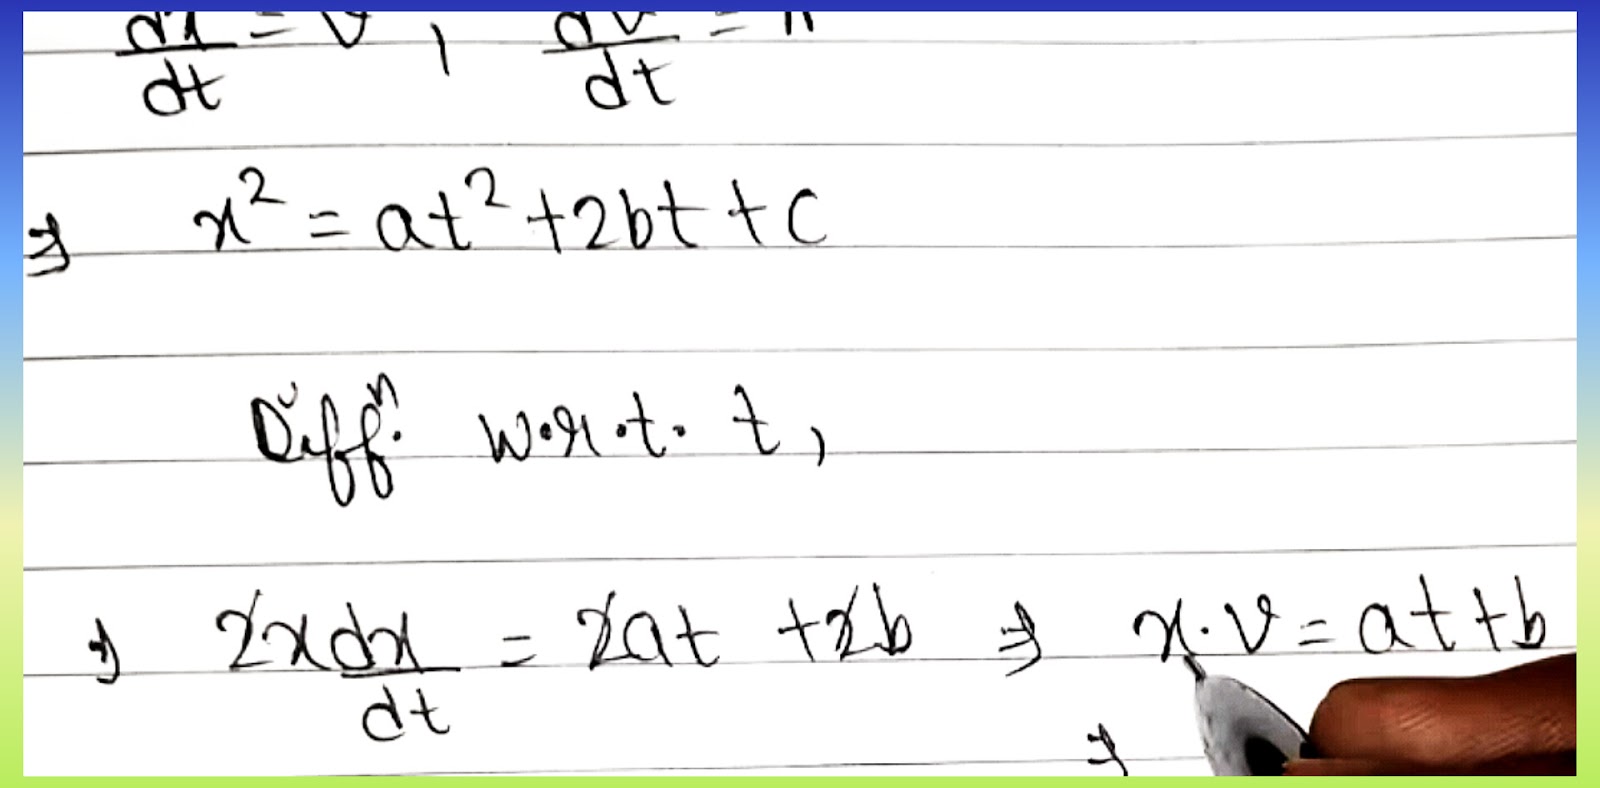 dx/dt = v , dv/dt =
⇒ x² = at² + 2bt + c
Diffⁿ. w.r.t. t,
⇒ 2x dx/dt = 2at + 2b ⇒ x.v = at + b
⇒